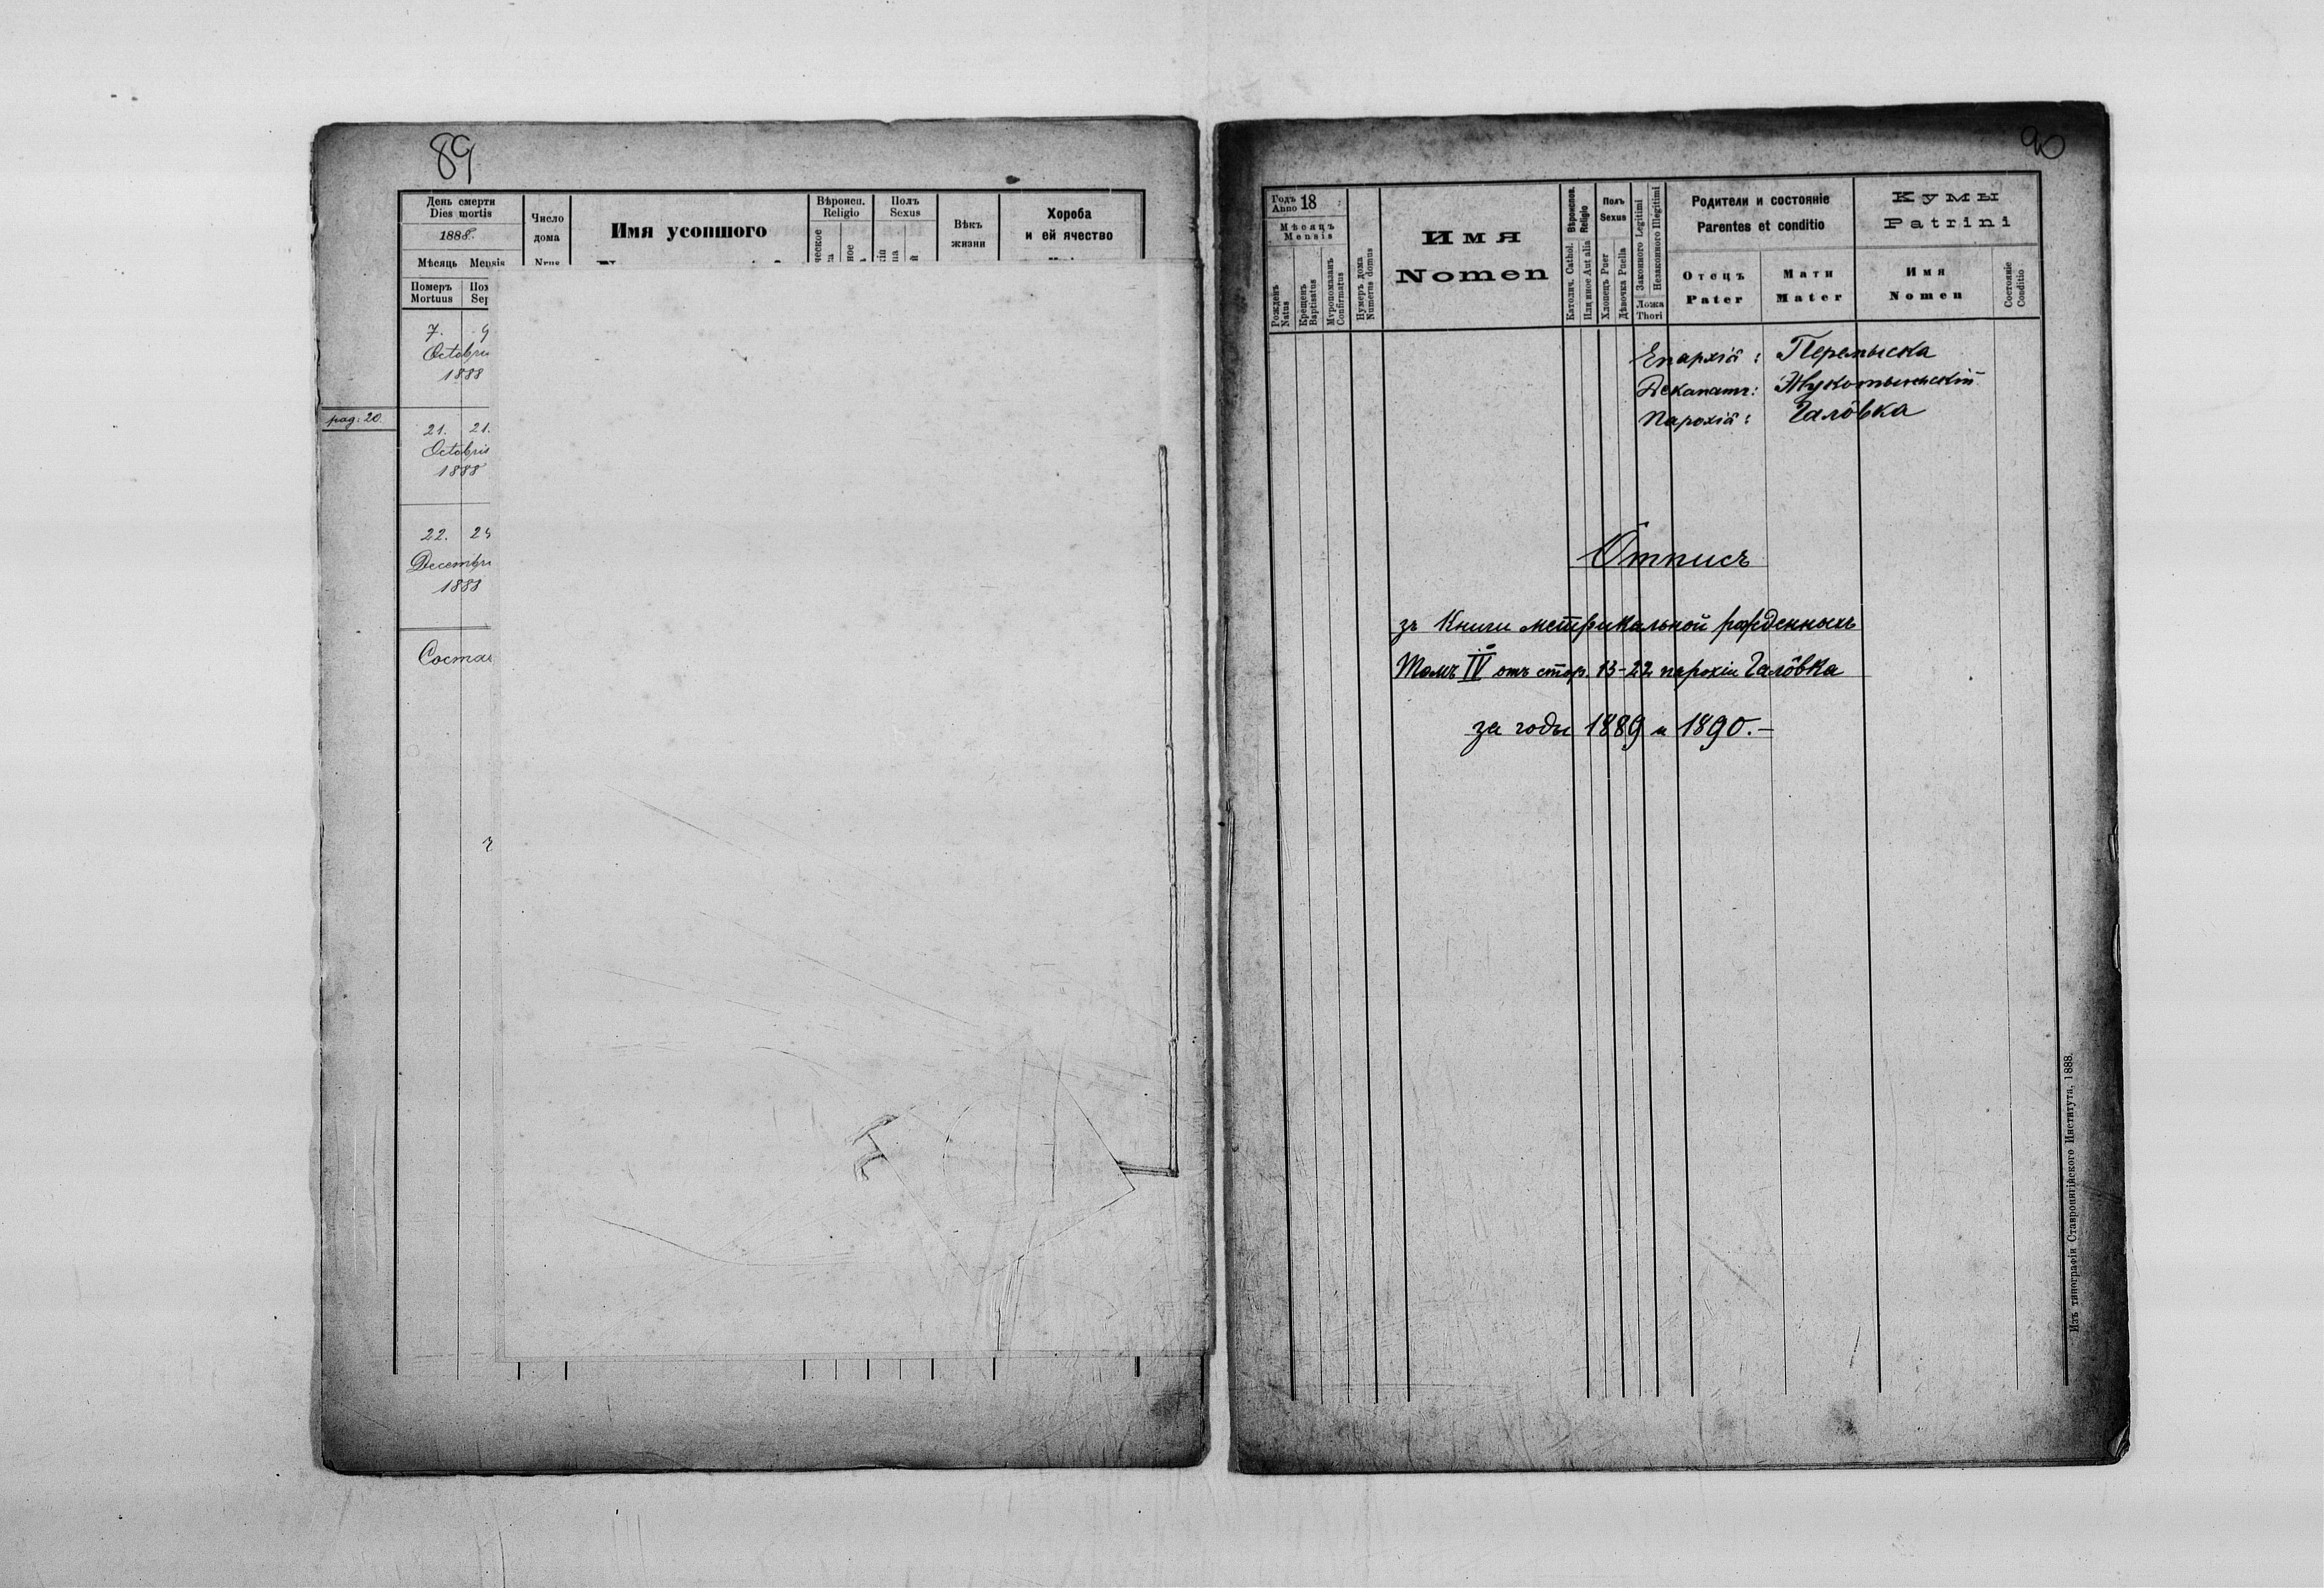 89
День смерти
Dies mortis
1888.
Мѣсяць Mensis
Померъ
Mortuus
Число
дома
Имя усопшого
Вѣроисп.
Religio
Полъ
Sexus
Вѣкъ
жизни
Хороба
и ей ячество
7. 9
Octobris
1888
pag: 20.
21. 21.
Octobris
1888
22. 24
Decembri
1888
Состав
90
Годъ
Anno 18
Мѣсяцъ
Mensis
Рожденъ
Natus
Крещенъ
Baptisatus
Мѵропомазанъ
Confirmatus
Нумеръ дома
Numerus domus
Имя
Nomen
Вѣроиспов.
Religio
Католич. Cathol.
Иладиное Aut alia
Полъ
Sexus
Хлопецъ Puer
Дѣвочка Puella
Законного Legitimi
Незаконного Illegitimi
Ложа
Thori
Родители и состояніе
Parentes et conditio
Отецъ
Pater
Мати
Mater
Кумы
Patrini
Имя
Nomen
Состояніе
Conditio
Епархія: Перемыска
Деканатъ: Жукотыньскій
Парохія: Галôвка
Ôтписъ
зъ Книги метрикальной рожденныхъ
Томъ IV отъ стор. 13-22 парохіи Галôвка
за годы 1889 и 1890.-
Изъ типографіи Ставропигійского Института, 1888.